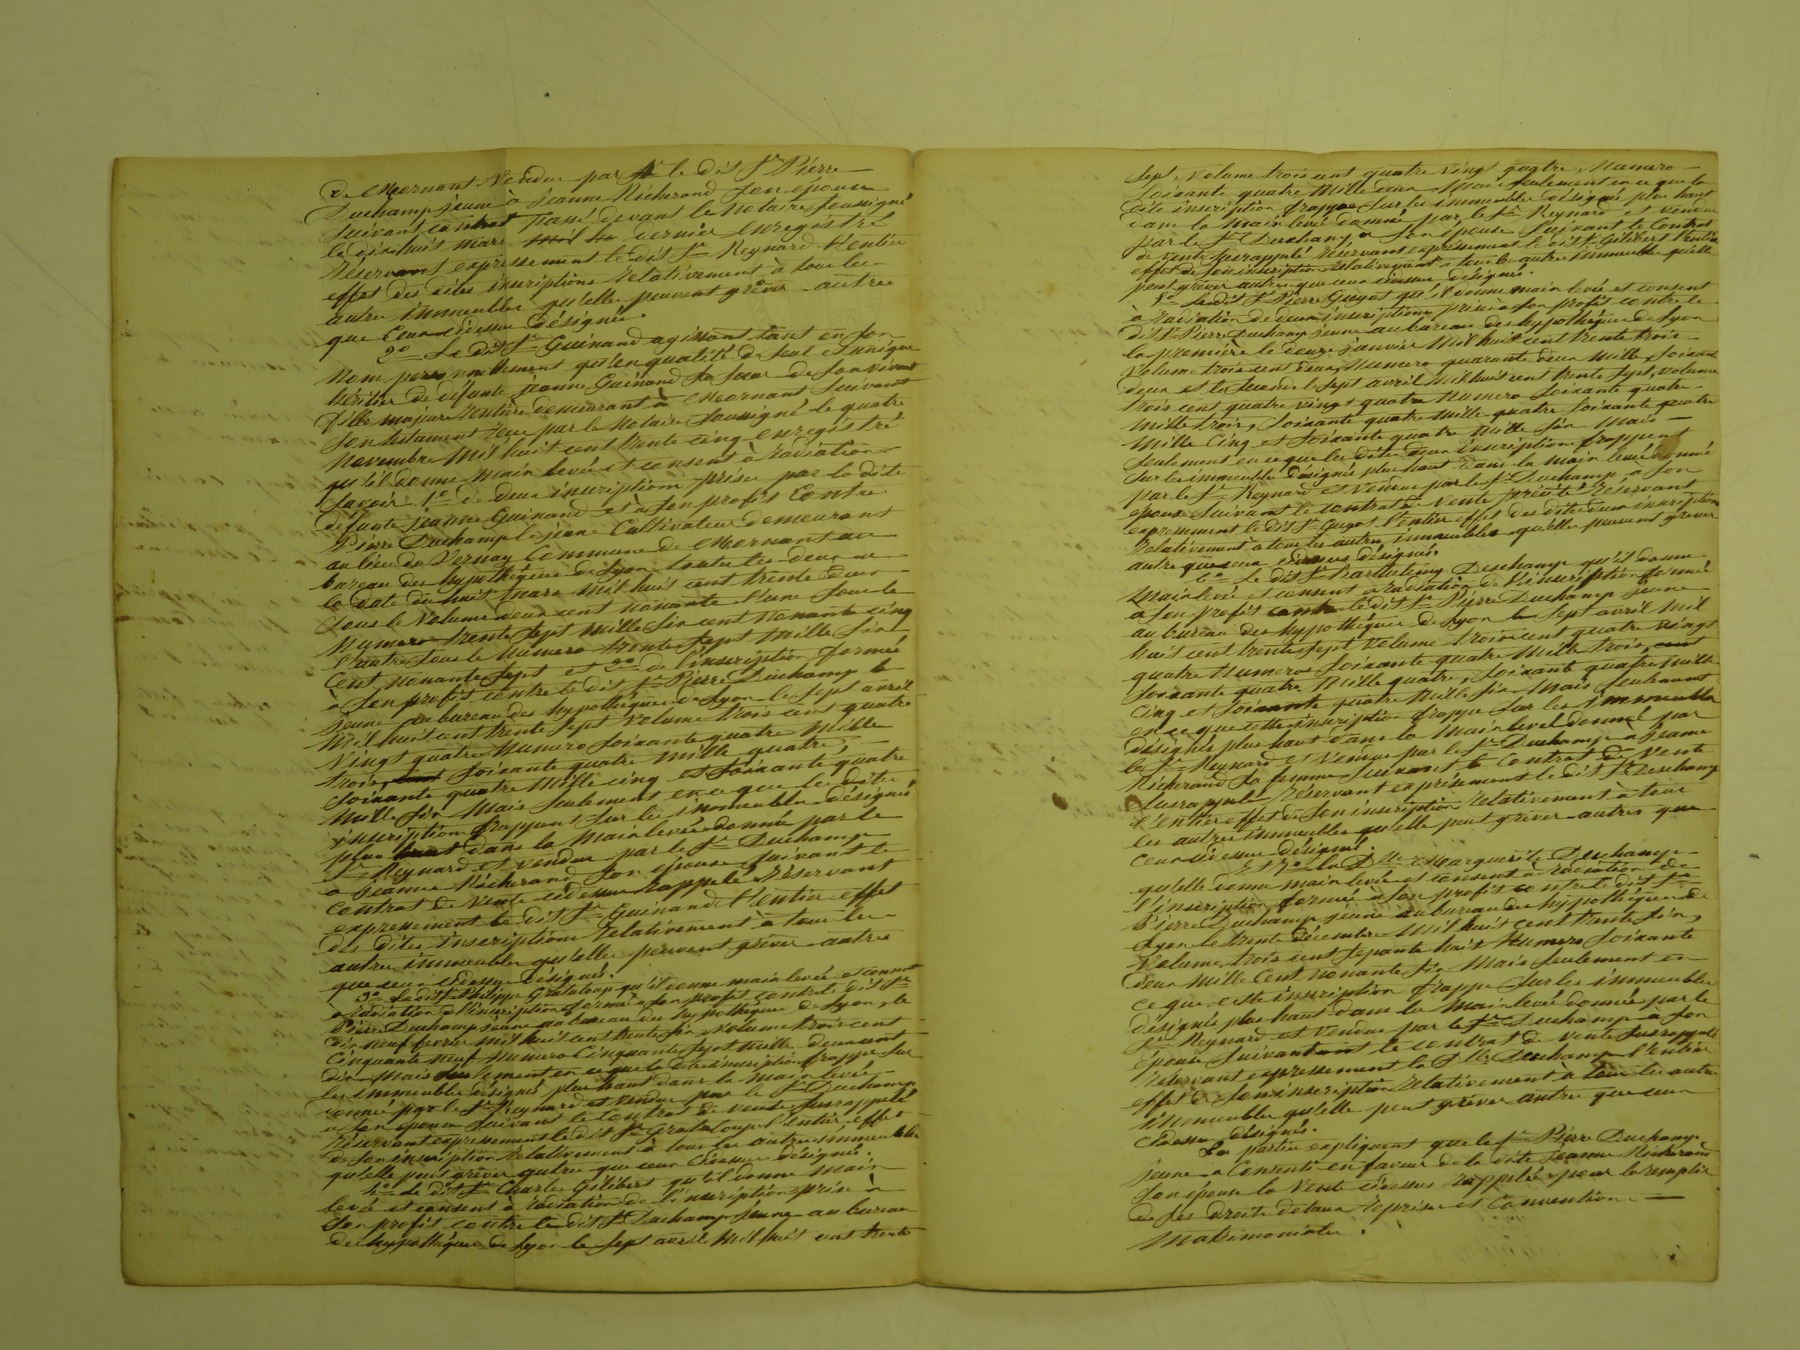 de Mornant vendu par le dit Sr Pierre
Duchamp jeune à Jeanne Richerand son épouse
suivant contrat passé devant le Notaire soussigné
le dix huit mars dernier enregistré
Réservant expressement le dit Sr Reynard l'entier
effet des dites inscriptions relativement à tous les
autres immeubles qu'elles peuvent grêver autres
que ceux cidessus désignés.
2o Le dit Sr Guinand agissant tant en son
Nom personnellement qu'en qualité de seul et unique
héritier de défunte Jeanne Guinand sa sœur de son vivant
fille majeure rentière demeurant à Mornant suivant
son testament reçu par le Notaire soussigné le quatre
Novembre Mil huit cent trente cinq enregistré
qu'il donne main levée et consent à radiation
savoir 1o de deux inscriptions prises par la dite
défunte Jeanne Guinand et à son profit contre
Pierre Duchamp le jeune Cultivateur demeurant
au lieu du Vernay commune de Mornant au
bureau des hypothèques de Lyon toutes les deux
la date du huit mars Mil huit cent trente deux
sous le Volume deux cent nonante l'une sous le
Numero trente sept mille six cent nonante cinq
l'autre sous le Numero trente sept mille six
cent nonante sept et 2o de l'inscription formée
à son profit contre le dit Sr Pierre Duchamp le
jeune au bureau des hypothèques de Lyon le sept avril
Mil huit cent trente sept Volume trois cent quatre
Vingt quatre Numero soixante quatre Mille
trois, soixante quatre mille quatre,
soixante quatre Mille cinq et soixante quatre
Mille six Mais seulement en ce que les dites
inscriptions frappent sur les immeubles désignés
plus haut dans la Main levée donnée par le
Sr Reynard et vendus par le Sr Duchamp
à Jeanne Richerand son épouse suivant le
contrat de Vente cidessus rappelé Réservant
expressement le dit Sr Guinand l'entier effet
des dites inscriptions relativement à tous les
autres immeubles qu'elles peuvent grêver autres
que ceux cidessus désignés.
3o Le dit Sr Philippe Grataloup qu'il donne main levée et consent
à radiation de l'inscription formée à son profit contre le dit Sr
Pierre Duchamp jeune au bureau des hypothèques de Lyon le
dix neuf fevrier Mil huit cent trente six Volume trois cent
Cinquante neuf Numero Cinquante sept mille deux cent
dix Mais seulement en ce que la dite inscription frappe sur
les immeubles désignés plus haut dans la Main levée
donnée par le Sr Reynard et vendus par le Sr Duchamp
à son épouse suivant le contrat de Vente susrappelé
Réservant expressement le dit Sr Grataloup l'entier effet
de son inscription relativement à tous les autres immeubles
qu'elle peut grêver autres que ceux cidessus désignés.
4o Le dit Sr Charles Gilibert qu'il donne Main
levée et consent à radiation de l'inscription prise à
son profit contre le dit Sr Duchamp jeune au bureau
des hypothèques de Lyon le sept avril Mil huit cent trente
sept, Volume trois cent quatre vingt quatre, Numero
soixante quatre Mille deux Mais seulement en ce que la
dite inscription frappe sur les immeubles désignés plus haut
dans la Main levée donnée par le Sr Reynard et vendus
par le Sr Duchamp à son épouse suivant le contrat
de Vente susrappelé Réservant expressement le dit Sr Gilibert l'entier
effet de son inscription relativement à tous les autres immeubles qu'elle
peut grêver autres que ceux cidessus désignés.
5o Le dit Sr Pierre Guyot qu'il donne main levée et consent
à radiation de deux inscriptions prises à son profit contre le
dit Sr Pierre Duchamp jeune au bureau des hypothèques de Lyon
la première le douze janvier Mil huit cent trente trois
Volume trois cent deux, Numero quarante deux Mille soixante
deux et la seconde le sept avril Mil huit cent trente sept, Volume
trois cent quatre vingt quatre Numero soixante quatre
mille trois, soixante quatre mille quatre soixante quatre
Mille Cinq et soixante quatre Mille six Mais
seulement en ce que les dites deux inscriptions frappent
sur les immeubles désignés plus haut dans la main levée donnée
par le Sr Reynard et vendus par le Sr Duchamp à son
épouse suivant le contrat de Vente précité Réservant
expressement le dit Sr Guyot l'entier effet des dites deux inscriptions
relativement à tous les autres immeubles qu'elles peuvent grêver
autres que ceux cidessus désignés.
6o Le dit Sr Barthélemy Deschamp qu'il donne
Main levée et consent à radiation de l'inscription formée
à son profit contre le dit Sr Pierre Duchamp jeune
au bureau des hypothèques de Lyon le sept avril Mil
huit cent trente sept Volume trois cent quatre vingt
quatre Numeros soixante quatre Mille trois,
soixante quatre Mille quatre, soixante quatre mille
cinq et soixante quatre Mille six Mais seulement
en ce que cette inscription frappe sur les immeubles
désignés plus haut dans la Main levée donnée par
le Sr Reynard et vendus par le Sr Duchamp à Jeanne
Richerand sa femme suivant le contrat de Vente
susrappelé Réservant expressement le dit Sr Deschamp
l'entier effet de son inscription relativement à tous
les autres immeubles qu'elle peut grêver autres que
ceux cidessus désignés.
Et 7o la Dlle Marguerite Deschamp
qu'elle donne main levée et consent à radiation de
l'inscription formée à son profit contre le dit Sr
Pierre Duchamp jeune au bureau des hypothèques de
Lyon le trente décembre Mil huit cent trente six,
Volume trois cent septante huit Numero soixante
deux Mille Cent nonante six Mais seulement en
ce que cette inscription frappe sur les immeubles
désignés plus haut dans la Main levée donnée par le
Sr Reynard et vendus par le Sr Duchamp à son
épouse suivant le contrat de vente susrappelé
Réservant expressement la Dlle Deschamp l'entier
effet de son inscription relativement à tous les autres
immeubles qu'elle peut grêver autres que ceux
cidessus désignés.
Les parties expliquent que le Sr Pierre Duchamp
jeune a consenti en faveur de la dite Jeanne Richerand
son épouse la Vente cidessus rappelée pour la remplir
de ses droits dotaux reprises et Conventions
Matrimoniales.